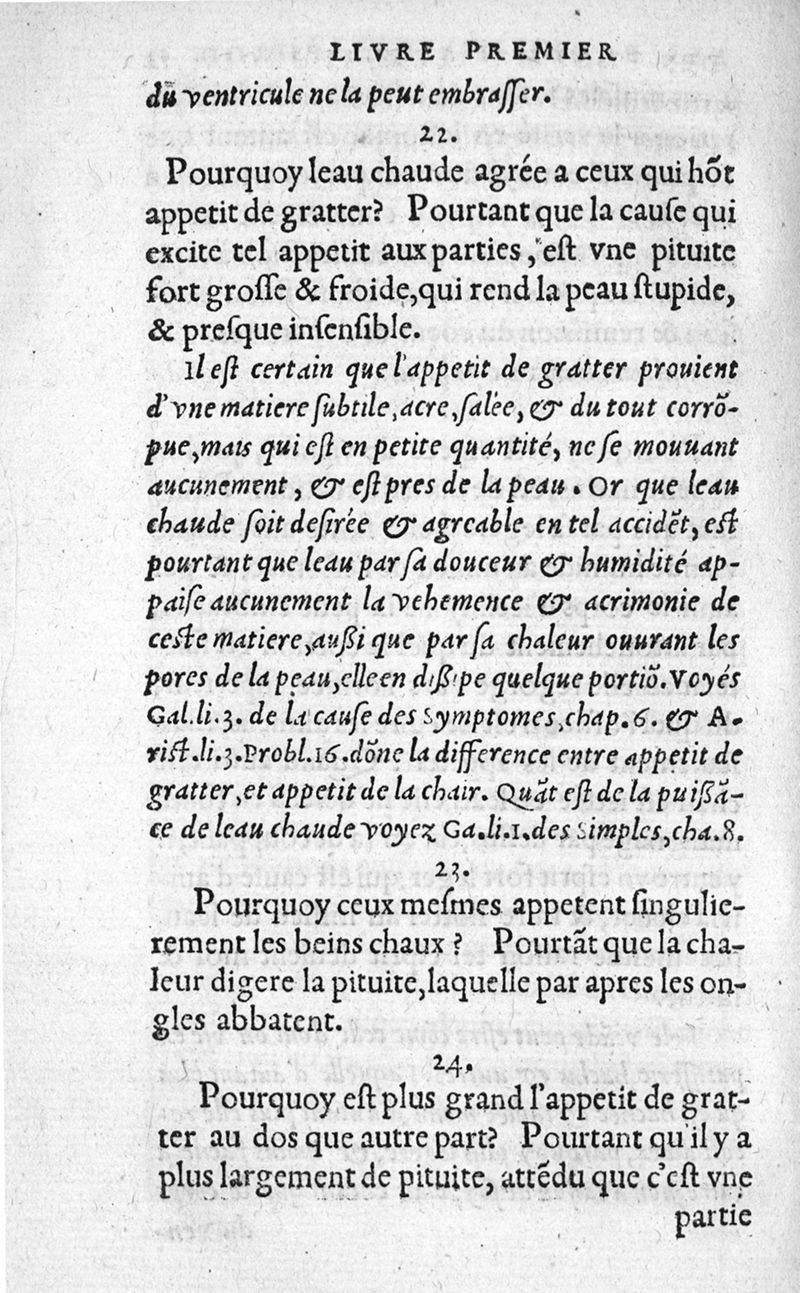 LIVRE PREMIER
du ventricule ne la peut embraſſer.
22.
Pourquoy leau chaude agrée a ceux qui hõt
appetit de gratter? Pourtant que la cauſe qui
excite tel appetit aux parties, eſt vne pituite
fort groſſe & froide,qui rend la peau ſtupide,
& preſque inſenſible.
Il eſt certain que l'appetit de gratter prouient
d'vne matiere ſubtile,acre,ſalèe, & du tout corrõ-
pue,mais qui eſt en petite quantité, ne ſe mouuant
aucunement , & eſt pres de la peau . Or que leau
chaude ſoit deſirée & agreable en tel accidẽt, eſt
pourtant que leau par ſa douceur & humidité ap-
paiſe aucunement la vehemence & acrimonie de
ceſte matiere,auſsi que par ſa chaleur ouurant les
pores de la peau,elle en diſsipe quelque portiõ.Voyés
Gal.li.3. de la cauſe des Symptomes,chap.6. & A.
riſt.li.3.Probl.16.dõne la difference entre appetit de
gratter,et appetit de la chair. Quãt eſt de la puiſsã-
ce de leau chaude voyez Ga.li.1.des Simples,cha.8.
23.
Pourquoy ceux meſmes appetent ſingulie-
rement les beins chaux ? Pourtãt que la cha-
leur digere la pituite,laquelle par apres les on-
gles abbatent.
24.
Pourquoy eſt plus grand l'appetit de grat-
ter au dos que autre part? Pourtant qu'il y a
plus largement de pituite, attẽdu que c'eſt vne
partie